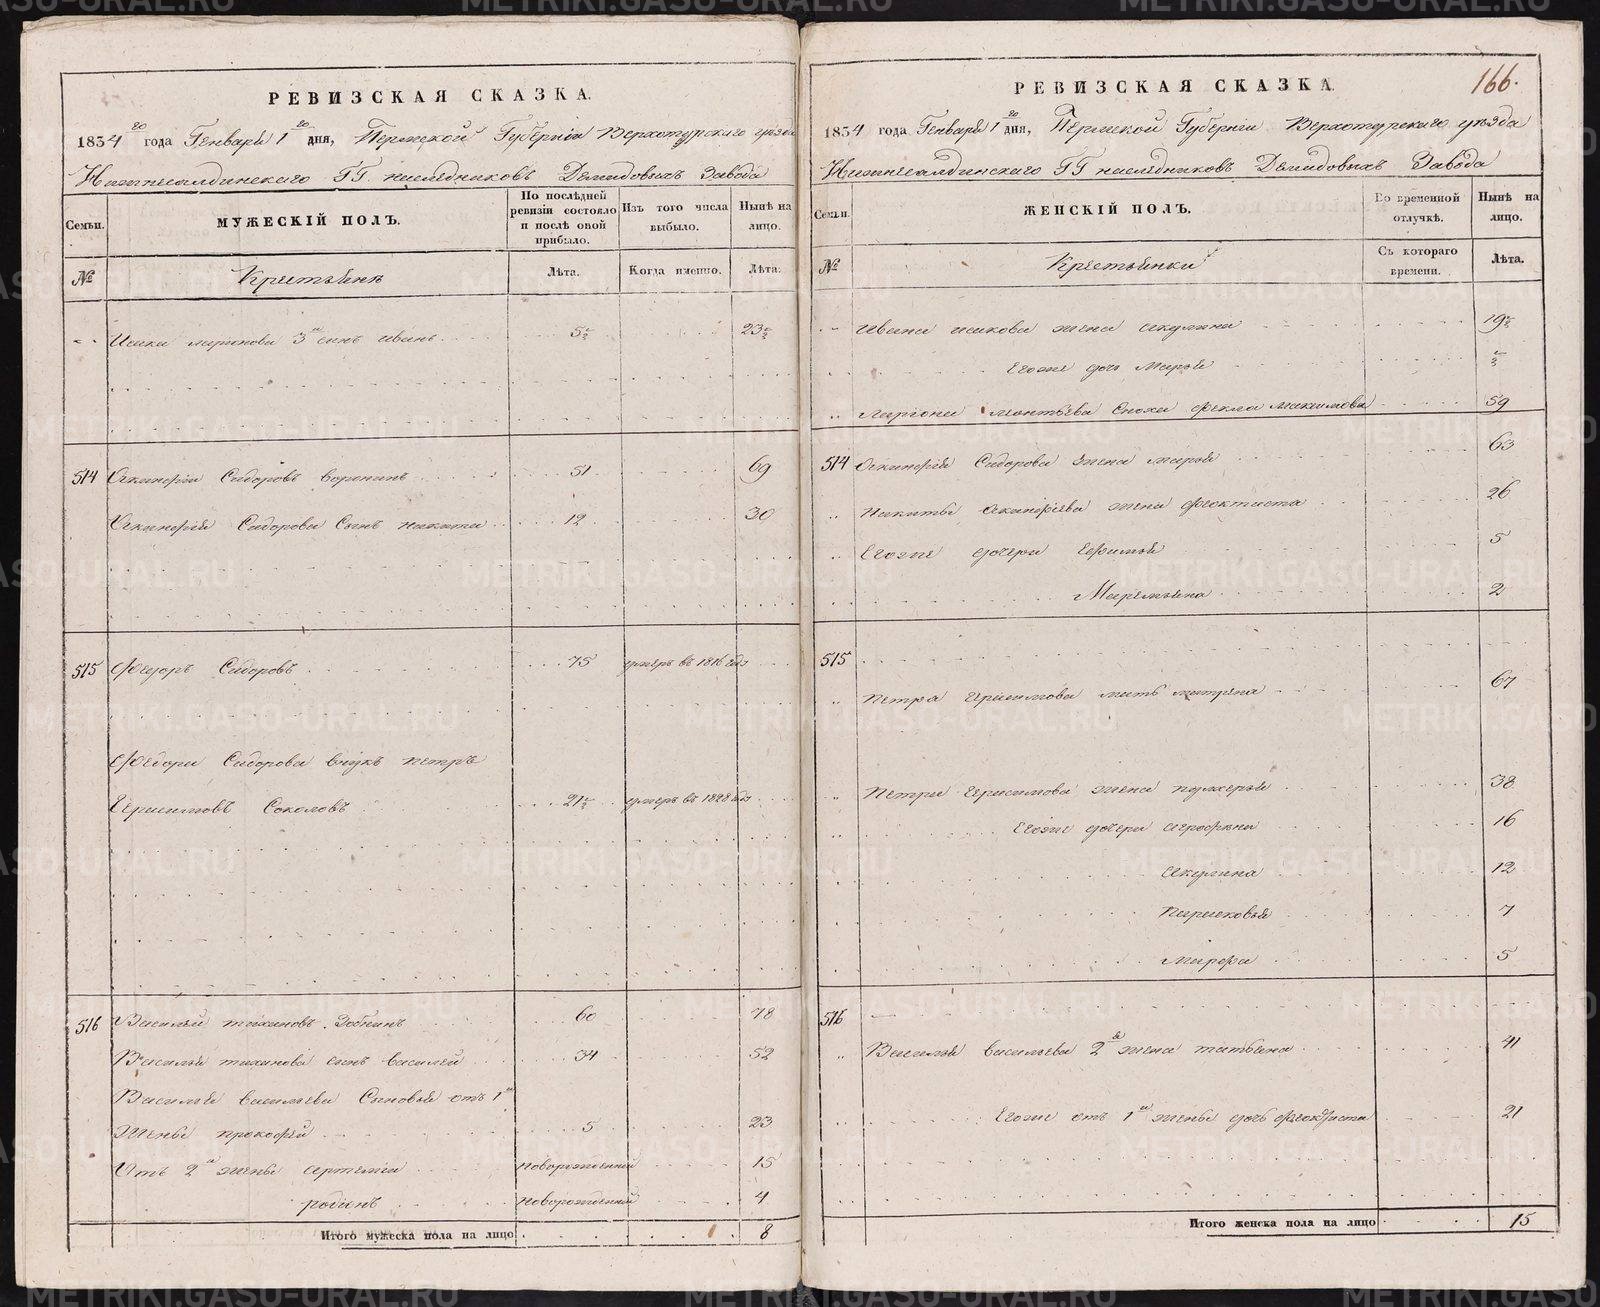 РЕВИЗСКАЯ СКАЗКА.
1834 го года Генваря 1 го дня, Пермской Губернiи Верхотурскаго уезда
Нижнесалдинскаго ГГ. наследниковъ Демидовыхъ Завода
Семьи.
МУЖЕСКIЙ ПОЛЪ.
По послѣдней ревизiи состояло и послѣ оной прибыло.
Изъ того числа выбыло.
Нынѣ на лицо.
№
Крестьянъ
Лѣта.
Когда именно.
Лѣта.
Исака ларiонова 3й сынъ иванъ 5½ 23½
514 Акинфiй Сидоровъ воронинъ 51 69
Акинфiя Сидорова Сынъ никита 12 30
515 Федоръ Сидоровъ 75 умеръ въ 1816 году
Федора Сидорова внукъ петръ
Герасимовъ Соколовъ 21½ умеръ въ 1828 году
516 Василiй тихановъ Зобнинъ 60 78
Василья тиханова сынъ василей 34 52
Василья васильева Сыновья отъ 1й
жены прокофей 5 23
Отъ 2й жены артемiй новорожденной 15
родiонъ новорожденной 4
Итого мужеска пола на лицо 8
166.
РЕВИЗСКАЯ СКАЗКА
1834 года Генваря 1 го дня, Пермской Губернiи Верхотурскаго уезда
Нижнесалдинскаго ГГ наследниковъ Демидовыхъ Завода
Семьи.
ЖЕНСКIЙ ПОЛЪ.
Во временной отлучкѣ.
Нынѣ на лицо.
№
Крестьянки
Съ котораго времени.
Лѣта.
Ивана исакова жена акулина 19½
Егоже дочь Марья ½
Ларiона леонтьева Сноха фекла максимова 59
514 Акинфiя Сидорова жена марья 63
Никиты Акинфiева жена феоктиста 26
Егоже дочери Ефимья 5
Маремьяна 2
515
Петра Герасимова мать матрена 67
Петра Герасимова жена пулхерья 38
Егоже дочери аграфена 16
Акулина 12
Парасковья 7
Марфа 5
516
Василья васильева 2я жена татьяна 41
Егоже отъ 1й жены дочь феоктиста 21
Итого женска пола на лицо 15
METRIKI.GASO-URAL.RU